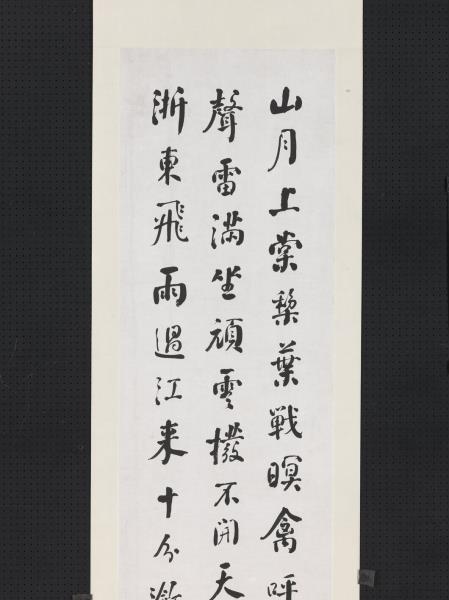 山月上棠棃葉戰暝禽呼
聲雷滿坐頑雲撥不開天
浙東飛雨過江来十分